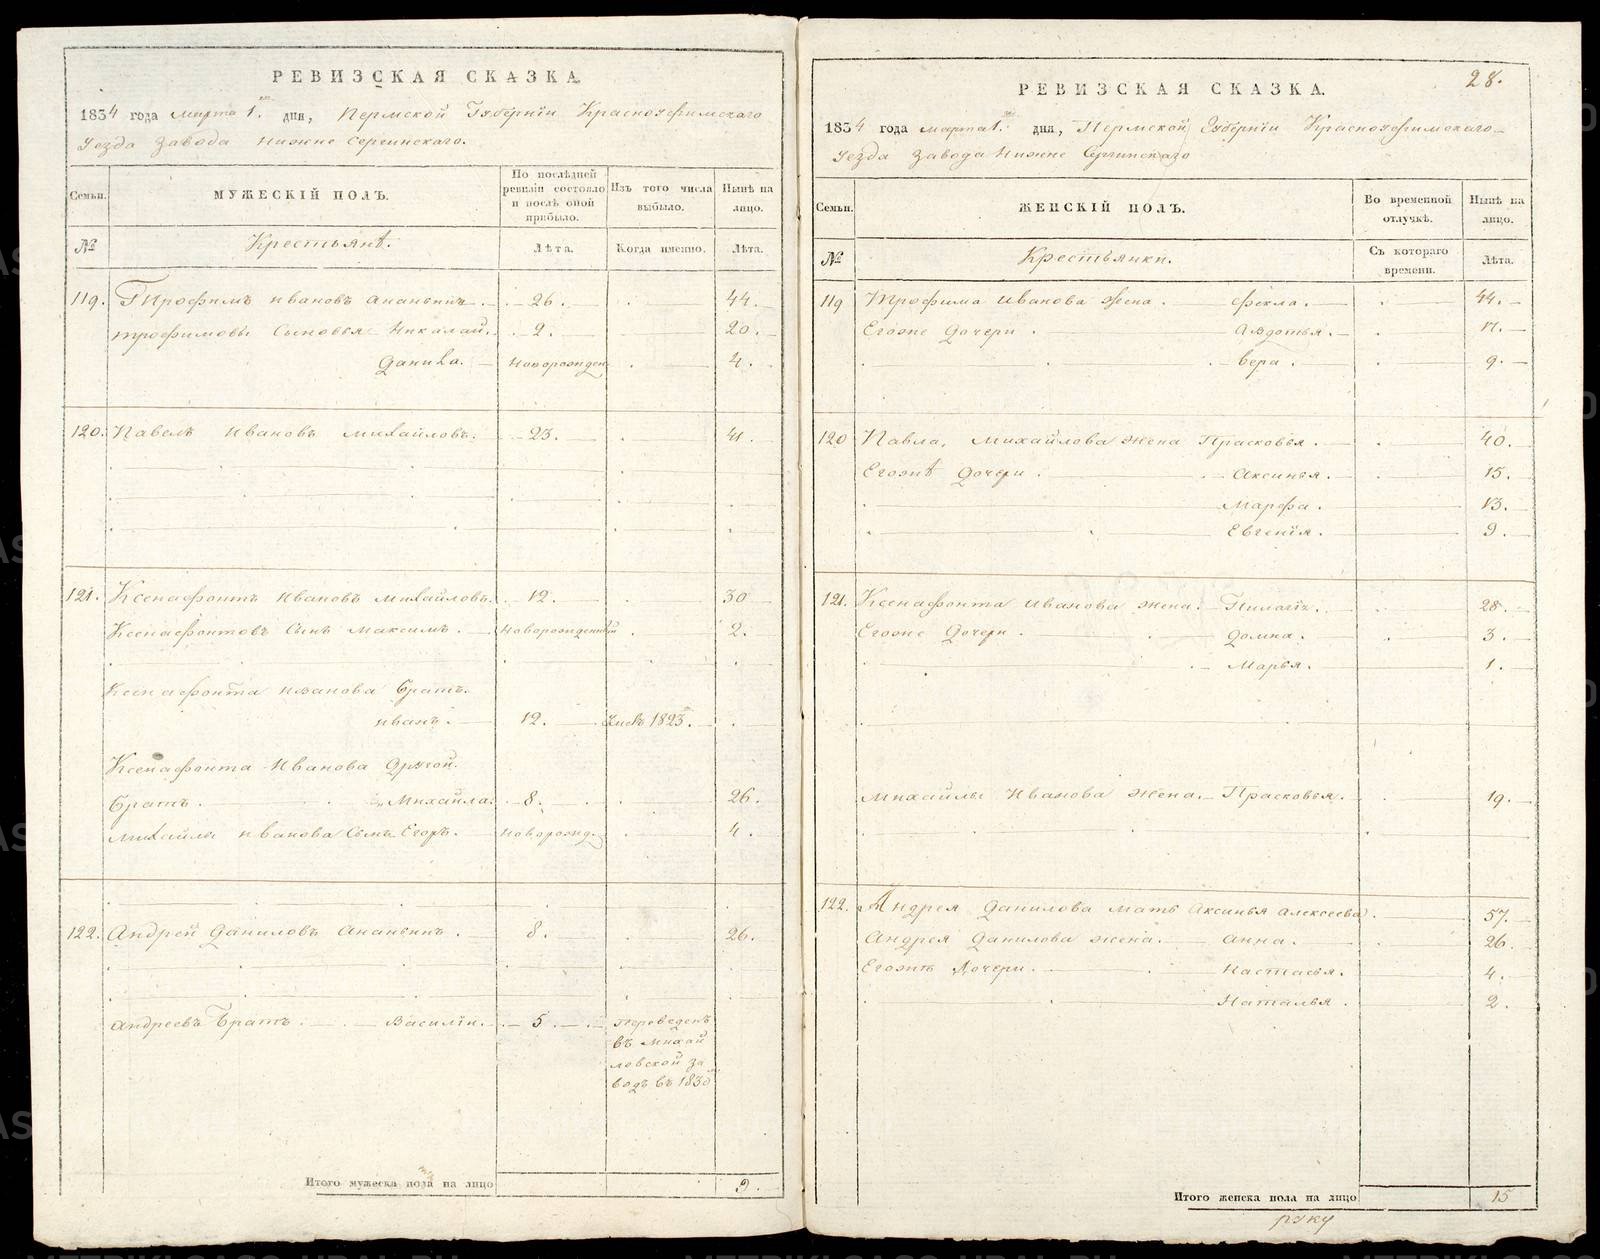 РЕВИЗСКАЯ СКАЗКА.
1834 года марта 1. дня, Пермской Губернiи Красноуфимскаго
Уезда Завода Нижне Сергинскаго.
Семьи.
МУЖЕСКІЙ ПОЛЪ.
По послѣдней ревизіи состояло и послѣ оной прибыло.
Изъ того числа выбыло.
Нынѣ на лицо.
№
Крестьянѣ.
Лѣта.
Когда именно.
Лѣта.
119. Трофимъ Ивановъ Ананьинъ. 26. 44.
Трофимовы Сыновья Николай. 2. 20.
Данила. Новорожден 4.
120. Павелъ Ивановъ Михайловъ. 23. 41.
121. Ксенафонтъ Ивановъ Михайловъ. 12. 30
Ксенафонтовъ Сынъ Максимъ. Новорожденный 2.
Ксенафонта Иванова Братъ.
Иванъ. 12. 1823.
Ксенафонта Иванова Другой
Братъ. Михайла. 8. 26.
Михайлы Иванова Сынъ Егоръ. Новорожд. 4.
122. Андрей Даниловъ Ананьинъ. 8. 26.
Андреевъ Братъ. Василiи. 5. Переведенъ
въ Михай
ловской за
водъ въ 1830
Итого мужеска пола на лицо 9.
28.
РЕВИЗСКАЯ СКАЗКА.
1834 года марта 1. дня, Пермской Губернiи Красноуфимскаго
Уезда Завода Нижне Сергинскаго
Семьи.
ЖЕНСКІЙ ПОЛЪ.
Во временной отлучкѣ.
Нынѣ на лицо.
№
Крестьянки.
Съ котораго времени.
Лѣта.
119 Трофима Иванова Жена. Фекла. 44.
Егоже Дочери Авдотья. 17.
Вера. 9.
120 Павла, Михайлова жена Прасковья. 40.
Егожѣ Дочери. Аксинья. 15.
Марфа. 13.
Евгенiя. 9.
121. Ксенафонта Иванова жена. 28.
Егоже Дочери. Домна. 3.
Марья. 1.
Михайлы Иванова Жена. Прасковья. 19.
122. Андрея Данилова мать Аксинья Алексеева. 57.
Андрея Данилова жена. Анна. 26.
Егожъ Дочери. Настасья. 4.
Наталья. 2.
Итого женска пола на лицо 15
руку